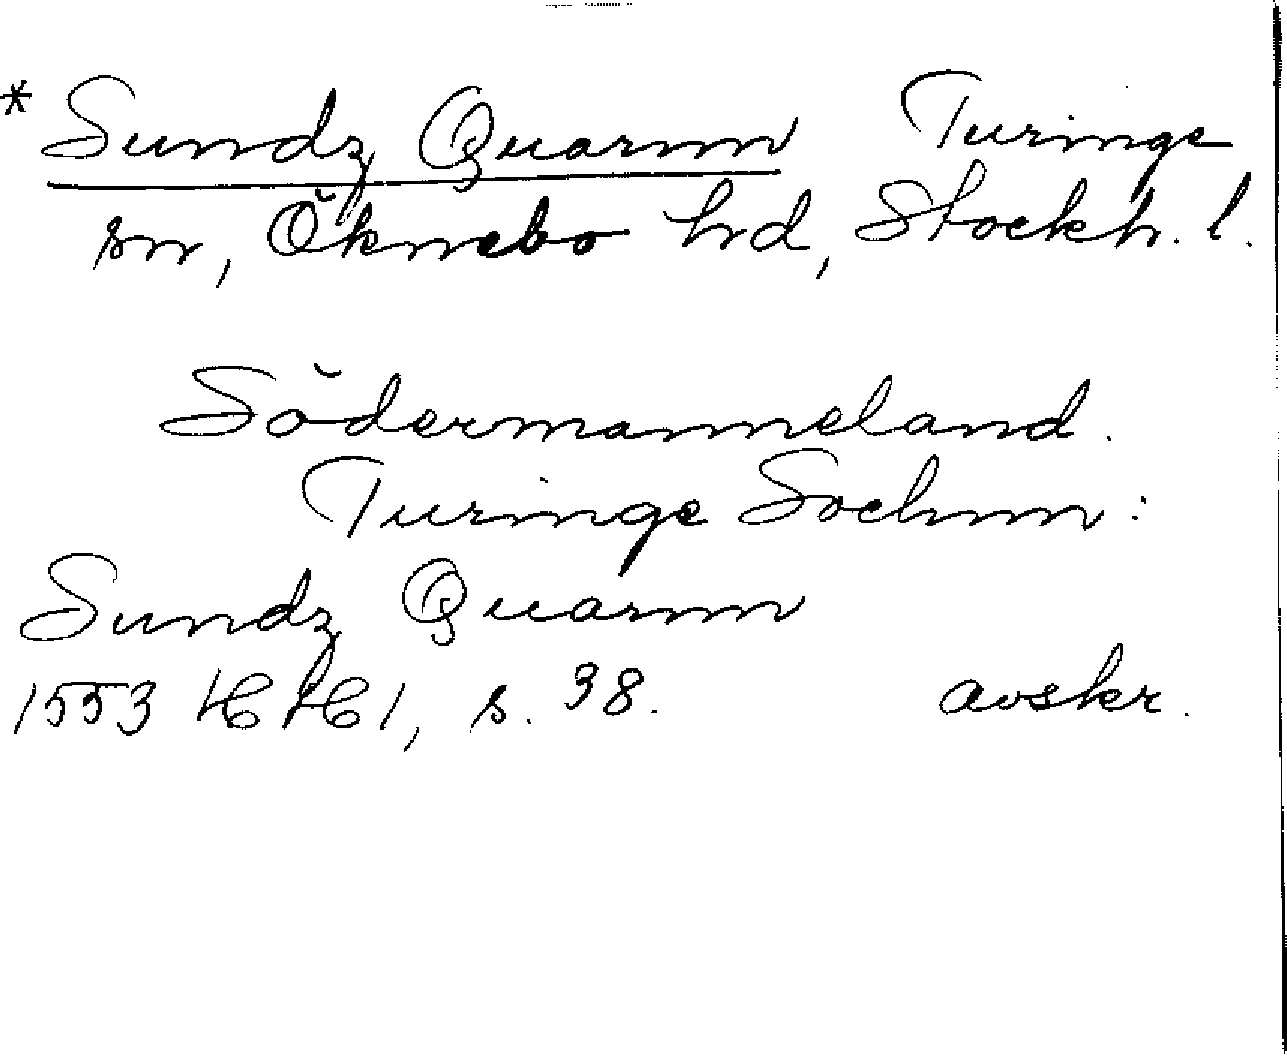 * Sundz Quarnn Turinge
sn, Öknebo hd, Stockh. l.
Södermanneland.
Turinge Sochnn:
Sundz Quarnn
1553 HH 1, s. 38. avskr.